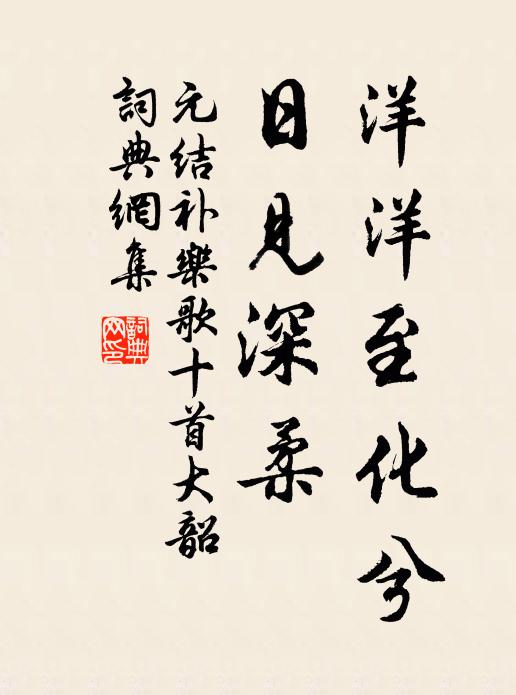 洋洋至化兮
日見深柔
元结补樂歌十首大韶
詞典網集
詞典
网印